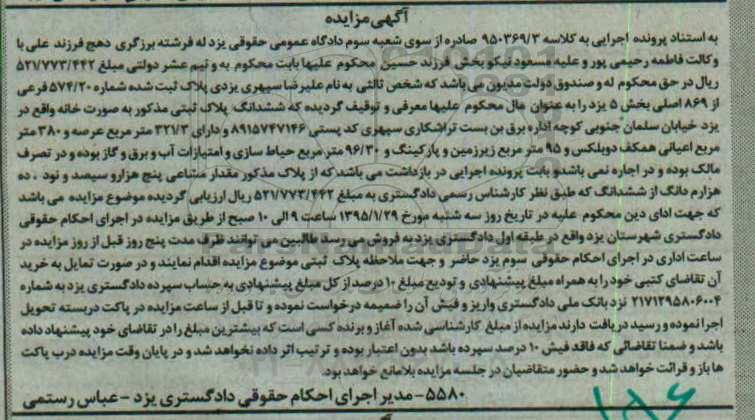 آگهی مزایده
به استناد پرونده اجرایی به کلاسه ۹۵۰۳۶۹/۳ صادره از سوی شعبه سوم دادگاه عمومی حقوقی یزد له فرشته برزگری دهج فرزند علی با
وکالت فاطمه رحیمی پور و علیه مسعود نیکو بخش فرزند حسین محکوم علیها بابت محکوم به و نیم عشر دولتی مبلغ ۵۲۱/۷۷۳/۴۴۲
ریال در حق محکوم له و صندوق دولت مدیون می باشد که شخص ثالثی به نام علیرضا سپهری یزدی پلاک ثبت شده شماره ۵۷۴/۲۰ فرعی
از ۸۶۹ اصلی بخش ۵ یزد را به عنوان مال محکوم علیها معرفی و توقیف گردیده که ششدانگ پلاک ثبتی مذکور به صورت خانه واقع در
یزد خیابان سلمان جنوبی کوچه اداره برق بن بست تراشکاری سپهری کد پستی ۸۹۱۵۷۴۷۱۴۶ و دارای ۳۲۱/۳ متر مربع عرصه و ۳۸۰ متر
مربع اعیانی همکف دوبلکس و ۹۵ متر مربع زیرزمین و پارکینگ و ۹۶/۳۰ متر مربع حیاط سازی و امتیازات آب و برق و گاز بوده و در تصرف
مالک بوده و در اجاره نمی باشد و بابت پرونده اجرایی در بازداشت می باشد که از پلاک مذکور مقدار مشاعی پنج هزار و سیصد و نود ، ده
هزارم دانگ از ششدانگ که طبق نظر کارشناس رسمی دادگستری به مبلغ ۵۲۱/۷۷۳/۴۶۲ ریال ارزیابی گردیده موضوع مزایده می باشد
که جهت ادای دین محکوم علیه در تاریخ روز سه شنبه مورخ ۱۳۹۵/۱/۲۹ ساعت ۹ الی ۱۰ صبح از طریق مزایده در اجرای احکام حقوقی
دادگستری شهرستان یزد واقع در طبقه اول دادگستری یزد به فروش می رسد طالبین می توانند ظرف مدت پنج روز قبل از روز مزایده در
ساعت اداری در اجرای احکام حقوقی سوم یزد حاضر و جهت ملاحظه پلاک ثبتی موضوع مزایده اقدام نمایند و در صورت تمایل به خرید
آن تقاضای کتبی خود را به همراه مبلغ پیشنهادی و تودیع مبلغ ۱۰ درصد از کل مبلغ پیشنهادی به حساب سپرده دادگستری یزد به شماره
۲۱۷۱۲۹۵۸۰۶۰۰۴ نزد بانک ملی دادگستری واریز و فیش آن را ضمیمه درخواست نموده و تا قبل از ساعت مزایده در پاکت دربسته تحویل
اجرا نموده و رسید دریافت دارند مزایده از مبلغ کارشناسی شده آغاز و برنده کسی است که بیشترین مبلغ را در تقاضای خود پیشنهاد داده
باشد و ضمنا تقاضائی که فاقد فیش ۱۰ درصد سپرده باشد بدون اعتبار بوده و ترتیب اثر داده نخواهد شد و در پایان وقت مزایده درب پاکت
ها باز و قرائت خواهد شد و حضور متقاضیان در جلسه مزایده بلامانع خواهد بود.
۵۵۸۰-مدیر اجرای احکام حقوقی دادگستری یزد -عباس رستمی